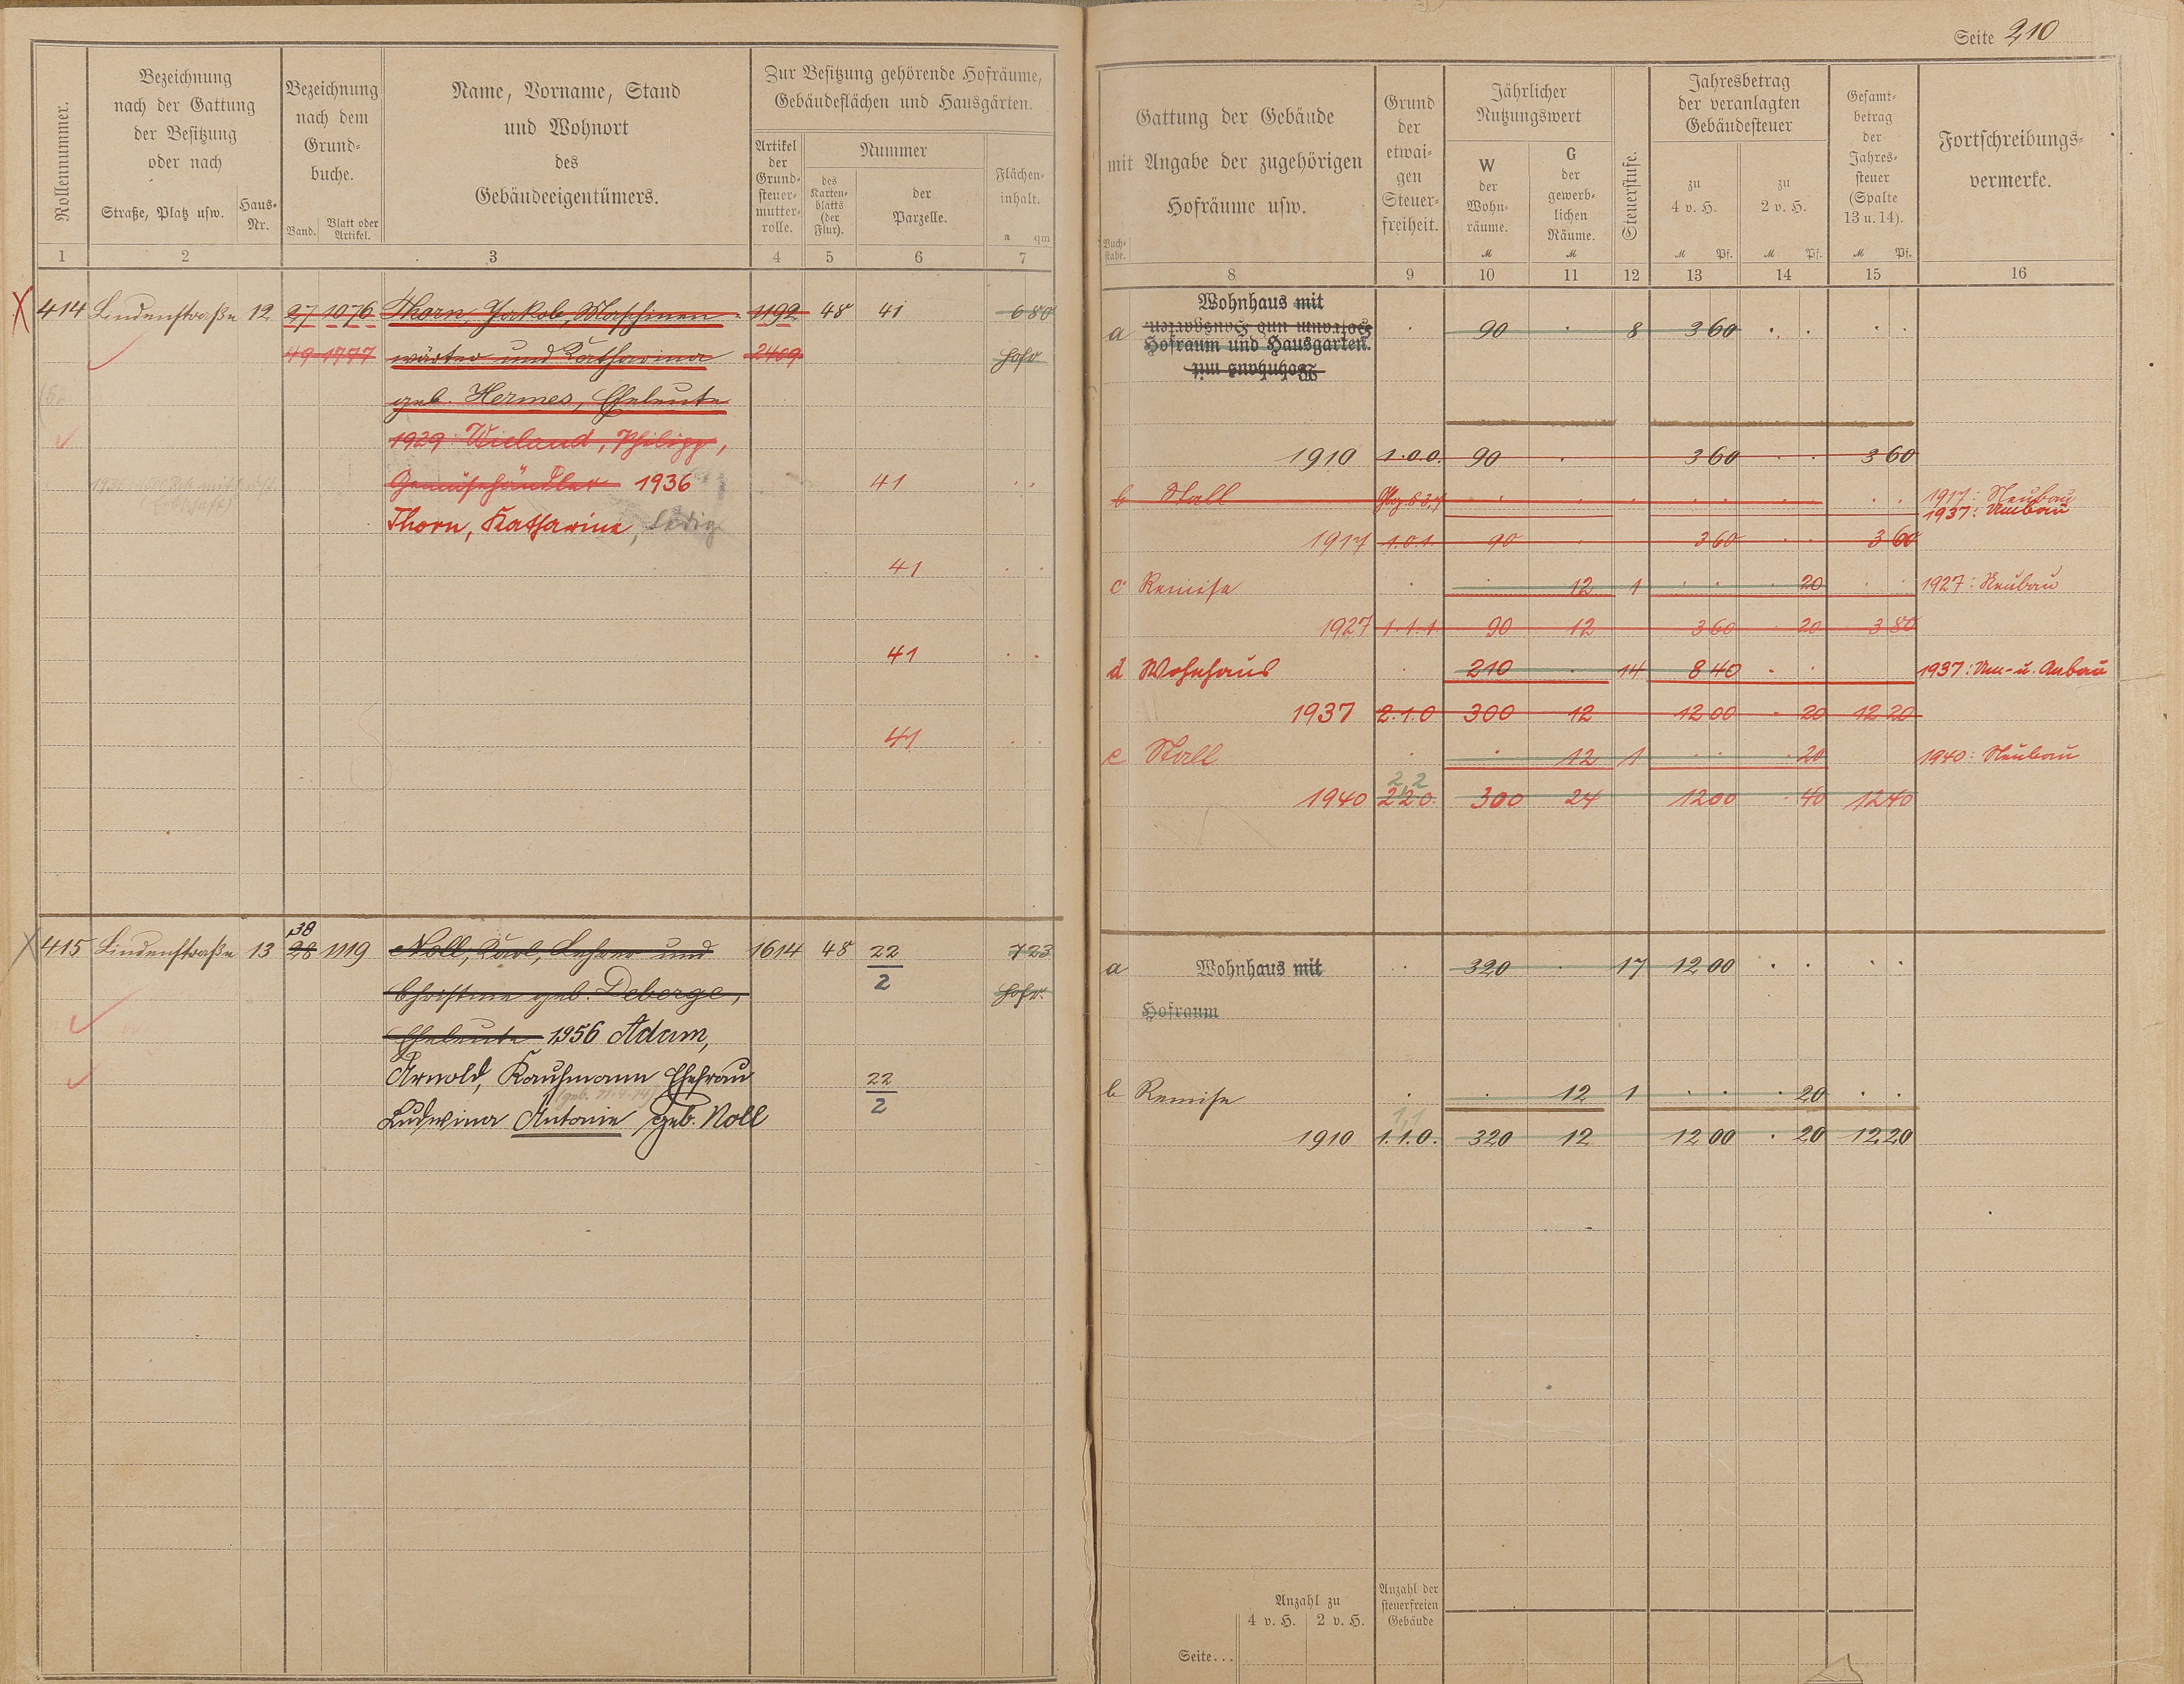 Seite 210
Rollennummer.
Bezeichnung
nach der Gattung
der Besitzung
oder nach
Straße, Platz usw.
Haus-
Nr.
Bezeichnung
nach dem
Grund-
buche.
Band.
Blatt oder
Artikel.
Name, Vorname, Stand
und Wohnort
des
Gebäudeeigentümers.
Zur Besitzung gehörende Hofräume,
Gebäudeflächen und Hausgärten.
Artikel
der
Grund-
steuer-
mutter-
rolle.
Nummer
des
Karten-
blatts
(der
Flur).
der
Parzelle.
Flächen-
inhalt.
a qm
1 2 3 4 5 6 7
414 Lindenstraße 12 27 1076 Thorn, Jakob, Maschinen- 1192 48 41 680
49 1777 wärter und Katharina 2469 Hofr
geb. Hermes, Eheleute
1929: Wieland, Philipp,
Gemüsehändler 1936 41
Thorn, Katharina, ledig
41
41
41
38
415 Lindenstraße 13 28 1119 Noll, Karl, Lehrer und 1614 48 22/2 723
Christine geb. Deberge, Hofr.
Eheleute 1956 Adam,
Arnold, Kaufmann Ehefrau 22/2
Ludwina Antonie geb. Noll
Gattung der Gebäude
mit Angabe der zugehörigen
Hofräume usw.
Buch-
stabe.
Grund
der
etwai-
gen
Steuer-
freiheit.
Jährlicher
Nutzungswert
W
der
Wohn-
räume.
M
G
der
gewerb-
lichen
Räume.
M
Steuerstufe.
Jahresbetrag
der veranlagten
Gebäudesteuer
zu
4 v. H.
M Pf.
zu
2 v. H.
M Pf.
Gesamt-
betrag
der
Jahres-
steuer
(Spalte
13 u. 14).
M Pf.
Fortschreibungs-
vermerke.
8 9 10 11 12 13 14 15 16
Wohnhaus mit
a Hofraum und Hausgarten 90 8 3 60
Hofraum und Hausgarten.
Wohnhaus mit
1910 1.0.0. 90 3 60 3 60
b Stall 1917: Neubau
1937: Umbau
1917 1.0.1. 90 3 60 3 60
c Remise 12 1 20 1927: Neubau
1927 1.1.1. 90 12 3 60 20 3 80
d Wohnhaus 210 14 8 40 1937: Um- u. Anbau
1937 2.1.0 300 12 12 00 20 12 20
e Stall 12 1 20 1940: Neubau
2,2
1940 2.2.0. 300 24 12 00 40 12 40
a Wohnhaus mit 320 17 12 00
Hofraum
b Remise 12 1 20
1,1
1910 1.1.0. 320 12 12 00 20 12 20
Anzahl zu
4 v. H. 2 v. H.
Anzahl der
steuerfreien
Gebäude
Seite...